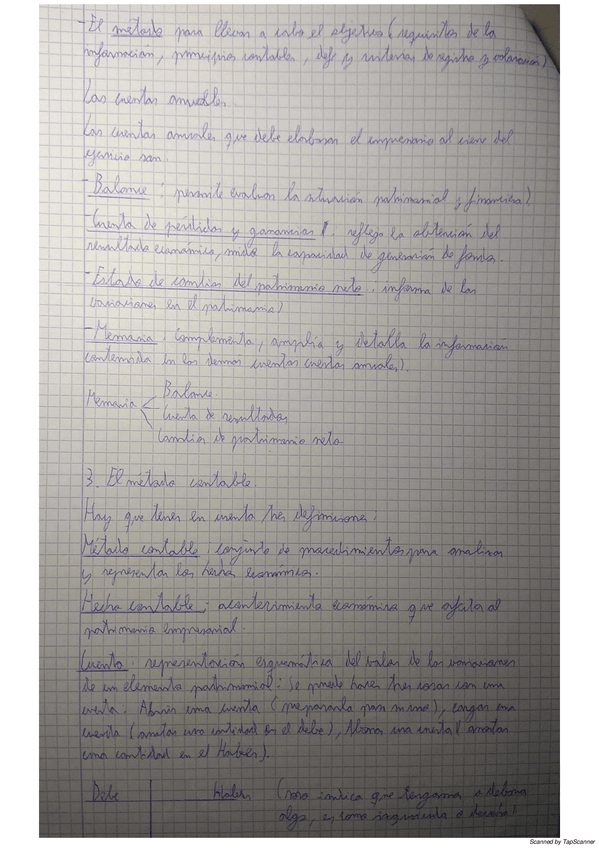 - El método para llevar a cabo el objetivo (requisitos de la
información, principios contables, defs y criterios de registro y valoración)
Las cuentas anuales.
Las cuentas anuales que debe elaborar el empresario al cierre del
ejercicio son:
- Balance: permite evaluar la situación patrimonial y financiera)
- Cuenta de pérdidas y ganancias (: refleja la obtención del
resultado económico, mide la capacidad de generación de fondos.
- Estado de cambios del patrimonio neto: informa de las
variaciones en el patrimonio)
- Memoria: complementa, amplía y detalla la información
contenida en los demás cuentas cuentas anuales).
Balance.
Memoria
Cuenta de resultados
Cambios de patrimonio neto
3. El método contable.
Hay que tener en cuenta tres definiciones:
Método contable: conjunto de procedimientos para analizar
y representar los hechos económicos.
Hecho contable: acontecimiento económico que afecta al
patrimonio empresarial.
Cuenta: representación esquemática del valor de las variaciones
de un elemento patrimonial: Se puede hacer tres cosas con una
cuenta. Abrir una cuenta (prepararla para su uso), cargar una
cuenta (anotar una cantidad en el debe), Abonar una cuenta (anotar
una cantidad en el Haber).
Debe Haber (no implica que tengamos o debamos
algo, es como izquierda o derecha)
Scanned by TapScanner